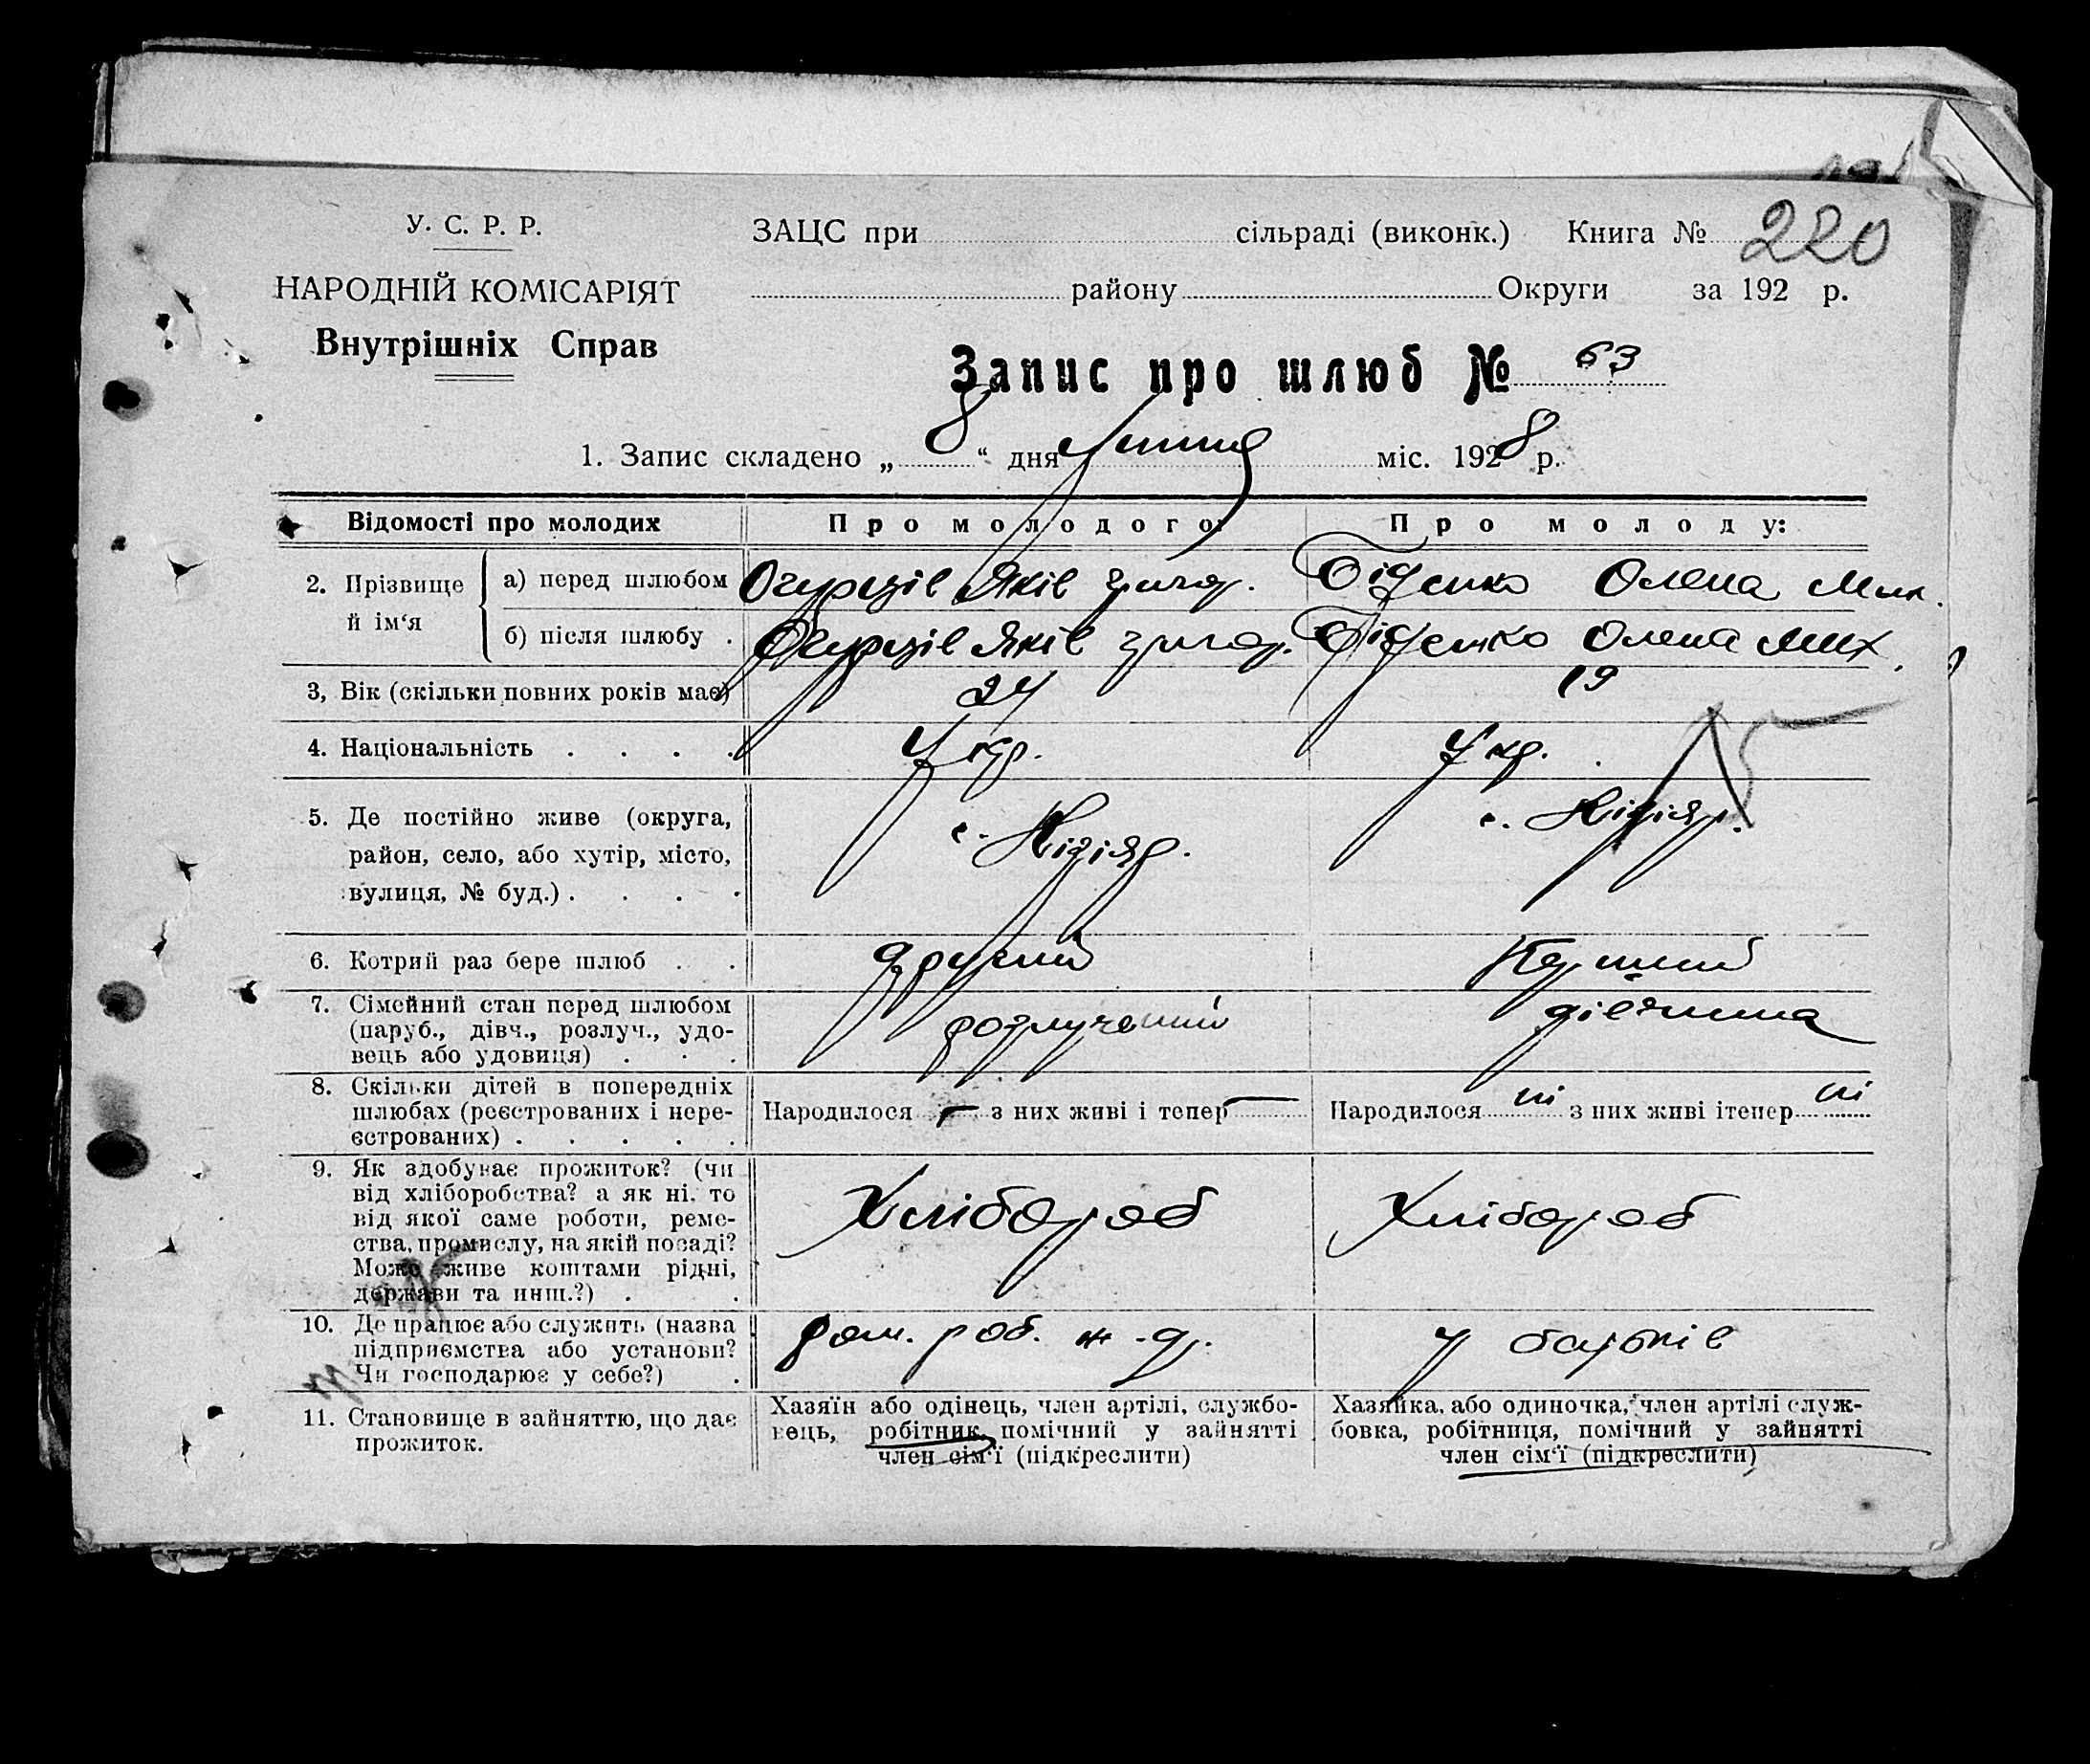 У. С. Р. Р.
НАРОДНІЙ КОМІСАРІЯТ
Внутрішніх Справ
ЗАЦС при сільраді (виконк.) Книга № 220
району Округи за 192 р.
Запис про шлюб № 63
1. Запис складено „ 8 “ дня липня міс. 1928 р.
Відомості про молодих
Про молодого:
Про молоду:
2. Прізвище й ім‘я
а) перед шлюбом
Яків Григор.
Олена Мих.
б) після шлюбу .
Яків Григор.
Олена Мих.
3, Вік (скільки повних років має)
24
19
4. Національність . . . .
Укр.
Укр.
5. Де постійно живе (округа,
район, село, або хутір, місто,
вулиця, № буд.) . . . .
с.
с.
6. Котрий раз бере шлюб . .
другий
Перший
7. Сімейний стан перед шлюбом
(паруб., дівч., розлуч., удо-
вець або удовиця) . . .
розлучений
дівчина
8. Скільки дітей в попередніх
шлюбах (реєстрованих і нере-
єстрованих) . . . . .
Народилося — з них живі і тепер —
Народилося ні з них живі ітепер ні
9. Як здобуває прожиток? (чи
від хліборобства? а як ні, то
від якої саме роботи, реме-
ства, промислу, на якій посаді?
Може живе коштами рідні,
держави та инш.?) . .
Хлібороб
Хлібороб
10. Де працює або служить (назва
підприємства або установи?
Чи господарює у себе?) .
роб. ж-д.
у батьків
11. Становище в зайняттю, що дає
прожиток.
Хазяїн або одінець, член артілі, службо-
вець, робітник, помічний у зайнятті
член сім‘ї (підкреслити)
Хазяйка, або одиночка, член артілі служ-
бовка, робітниця, помічний у зайнятті
член сім‘ї (підкреслити)